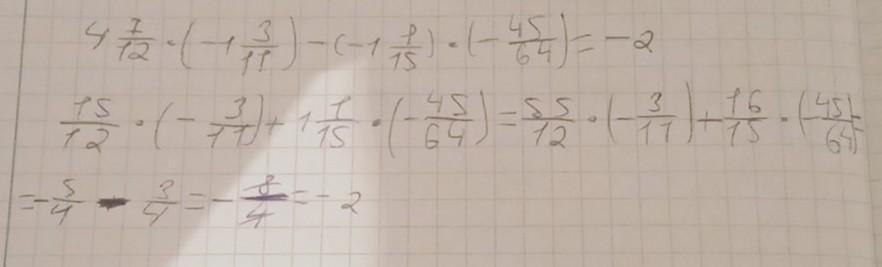 4 7/12 · (-1 3/11) - (-1 1/15) · (-45/64) = -2
15/12 · (-3/11) + 1 1/15 · (-45/64) = 55/12 · (-3/11) + 16/15 · (-45/64) =
= -5/4 - 3/4 = -8/4 = -2